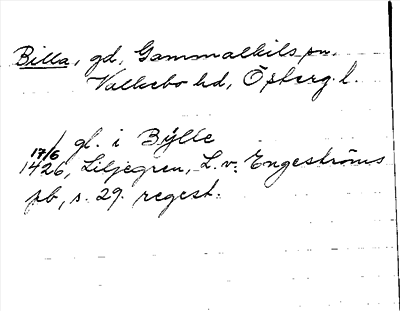 Billa, gd, Gammalkils sn.
Valkebo hd, Östergl.
gl. i Bylle
17/6
1426, Liljegren, L. v. Engeströms
pb, s. 29. regest.